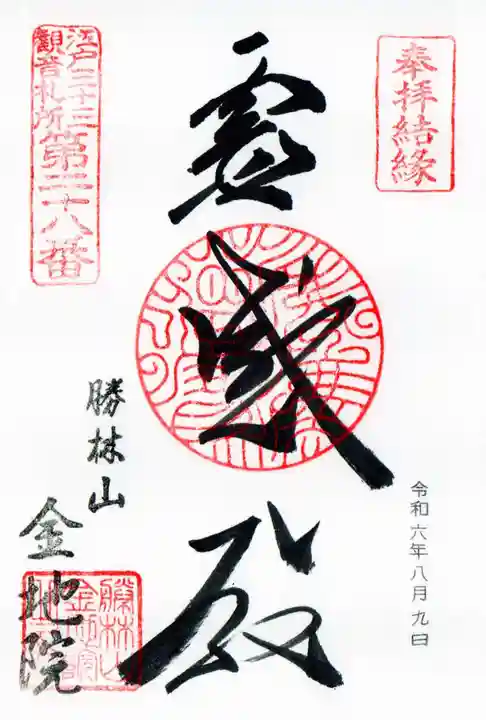 奉拝結縁
霊感殿
江戸三十三
観音札所
第二十八番
令和六年八月九日
勝林山
金地院
勝林山
金地院